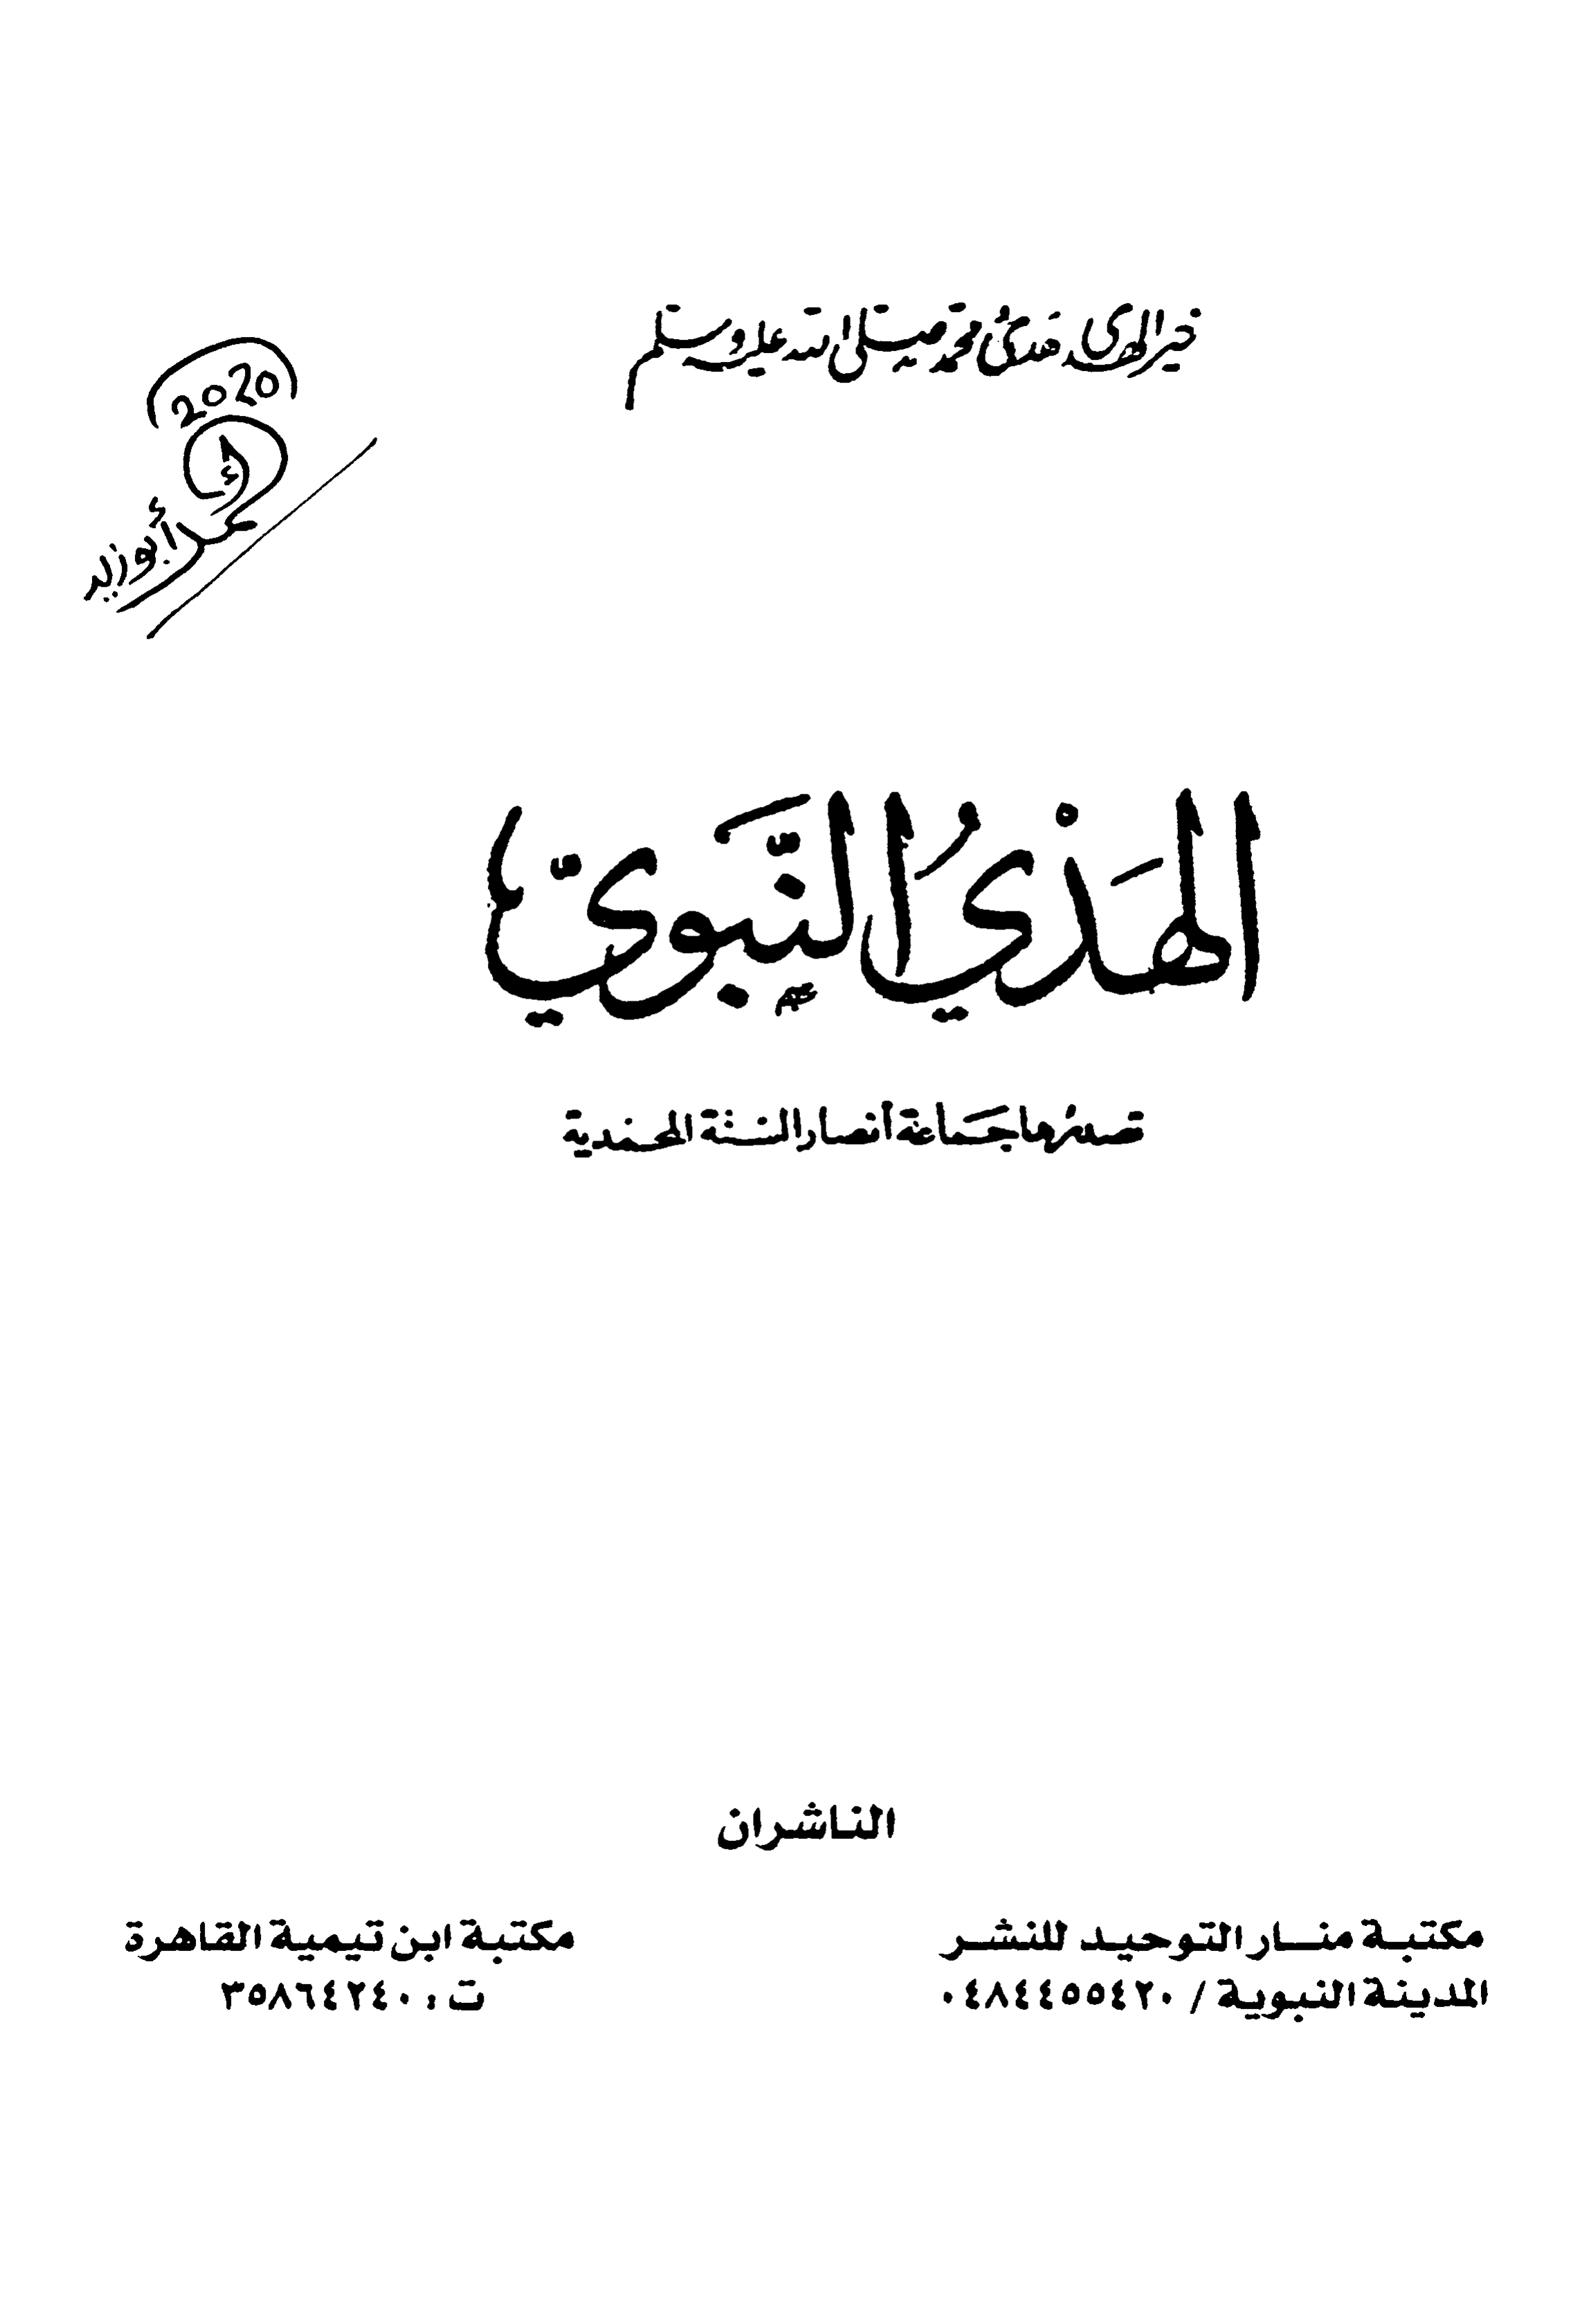 خير الهدى هدى محمد صلى الله عليه وسلم
2020
أ
أبو زيد
الهَدْيُ النَّبَوِيّ
تصدرها جماعة أنصار السنة المحمدية
الناشران
مكتبة منار التوحيد للنشر
المدينة النبوية / ٠٤٨٤٤٥٥٤٢٠
مكتبة ابن تيمية القاهرة
ت : ٣٥٨٦٤٢٤٠